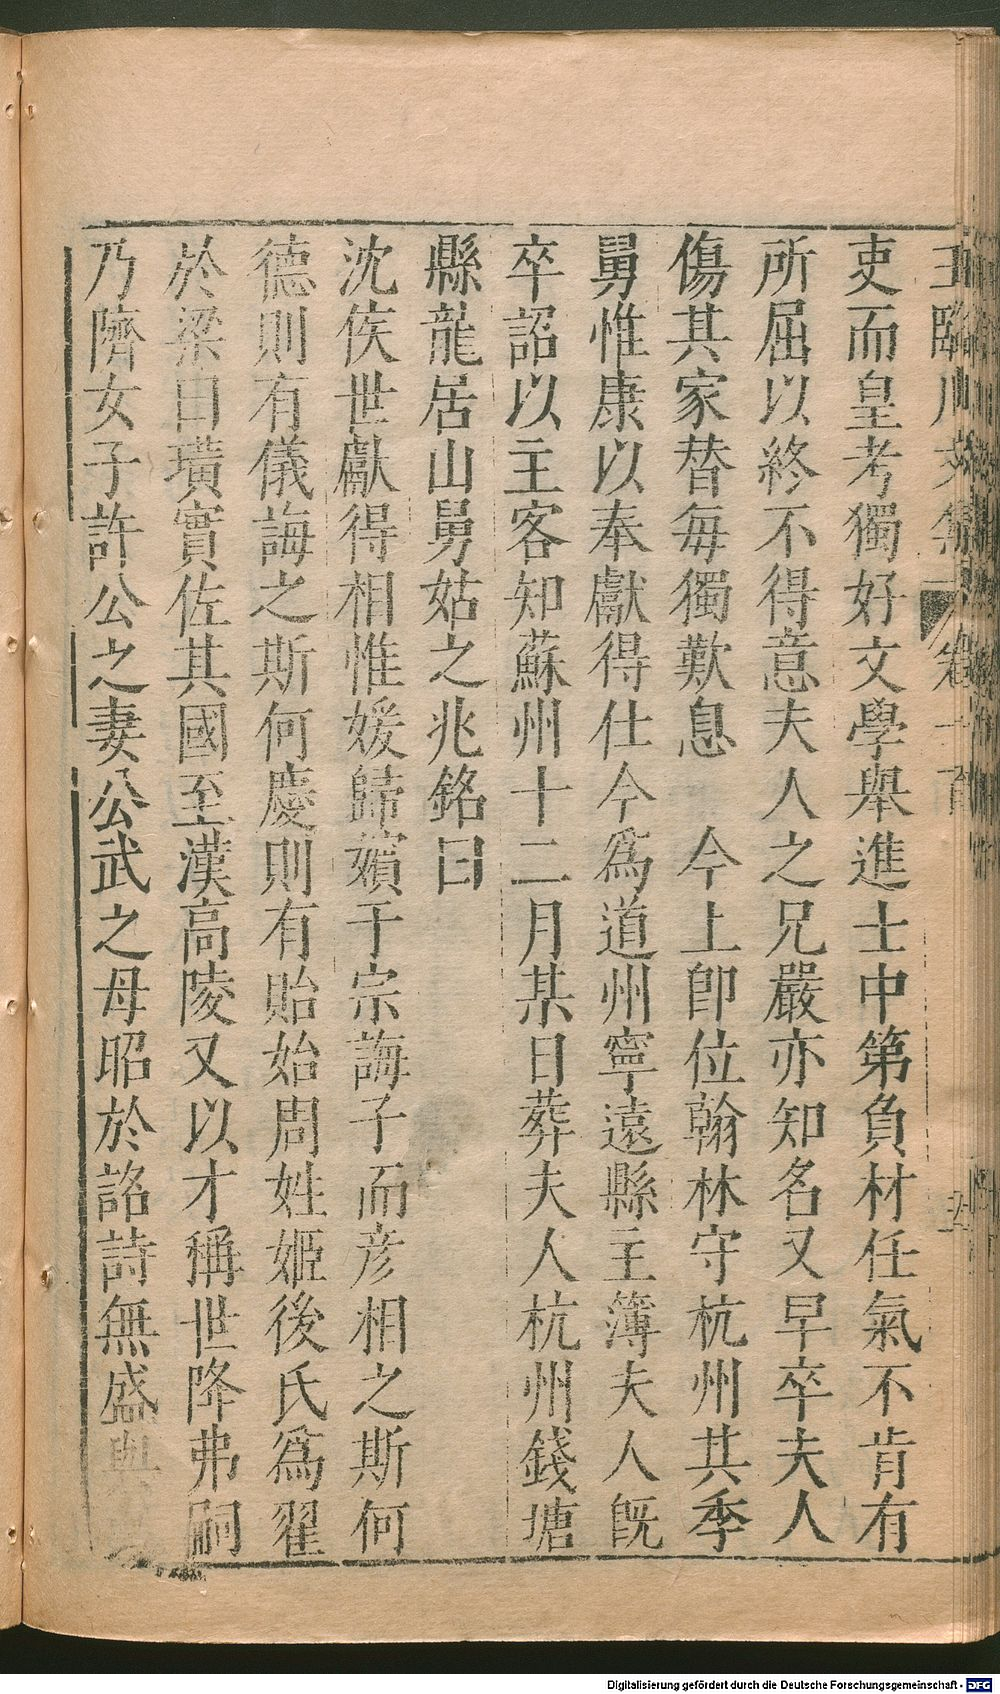 吏而皇考獨好文學舉進士中第負材任氣不肯有
所屈以終不得意夫人之兄嚴亦知名又早卒夫人
傷其家替每獨歎息　今上卽位翰林守杭州其季
舅惟康以奉獻得仕今爲道州寧遠縣主簿夫人旣
卒詔以主客知蘇州十二月某日葬夫人杭州錢塘
縣龍居山舅姑之兆銘曰
沈侯世獻得相惟媛歸嬪于宗誨子而彥相之斯何
德則有儀誨之斯何慶則有貽始周姓姬後氏爲翟
於梁曰璜實佐其國至漢高陵又以才稱世降弗嗣
乃隮女子許公之妻公武之母昭於詺詩無盛
Digitalisierung gefördert durch die Deutsche Forschungsgemeinschaft - DFG